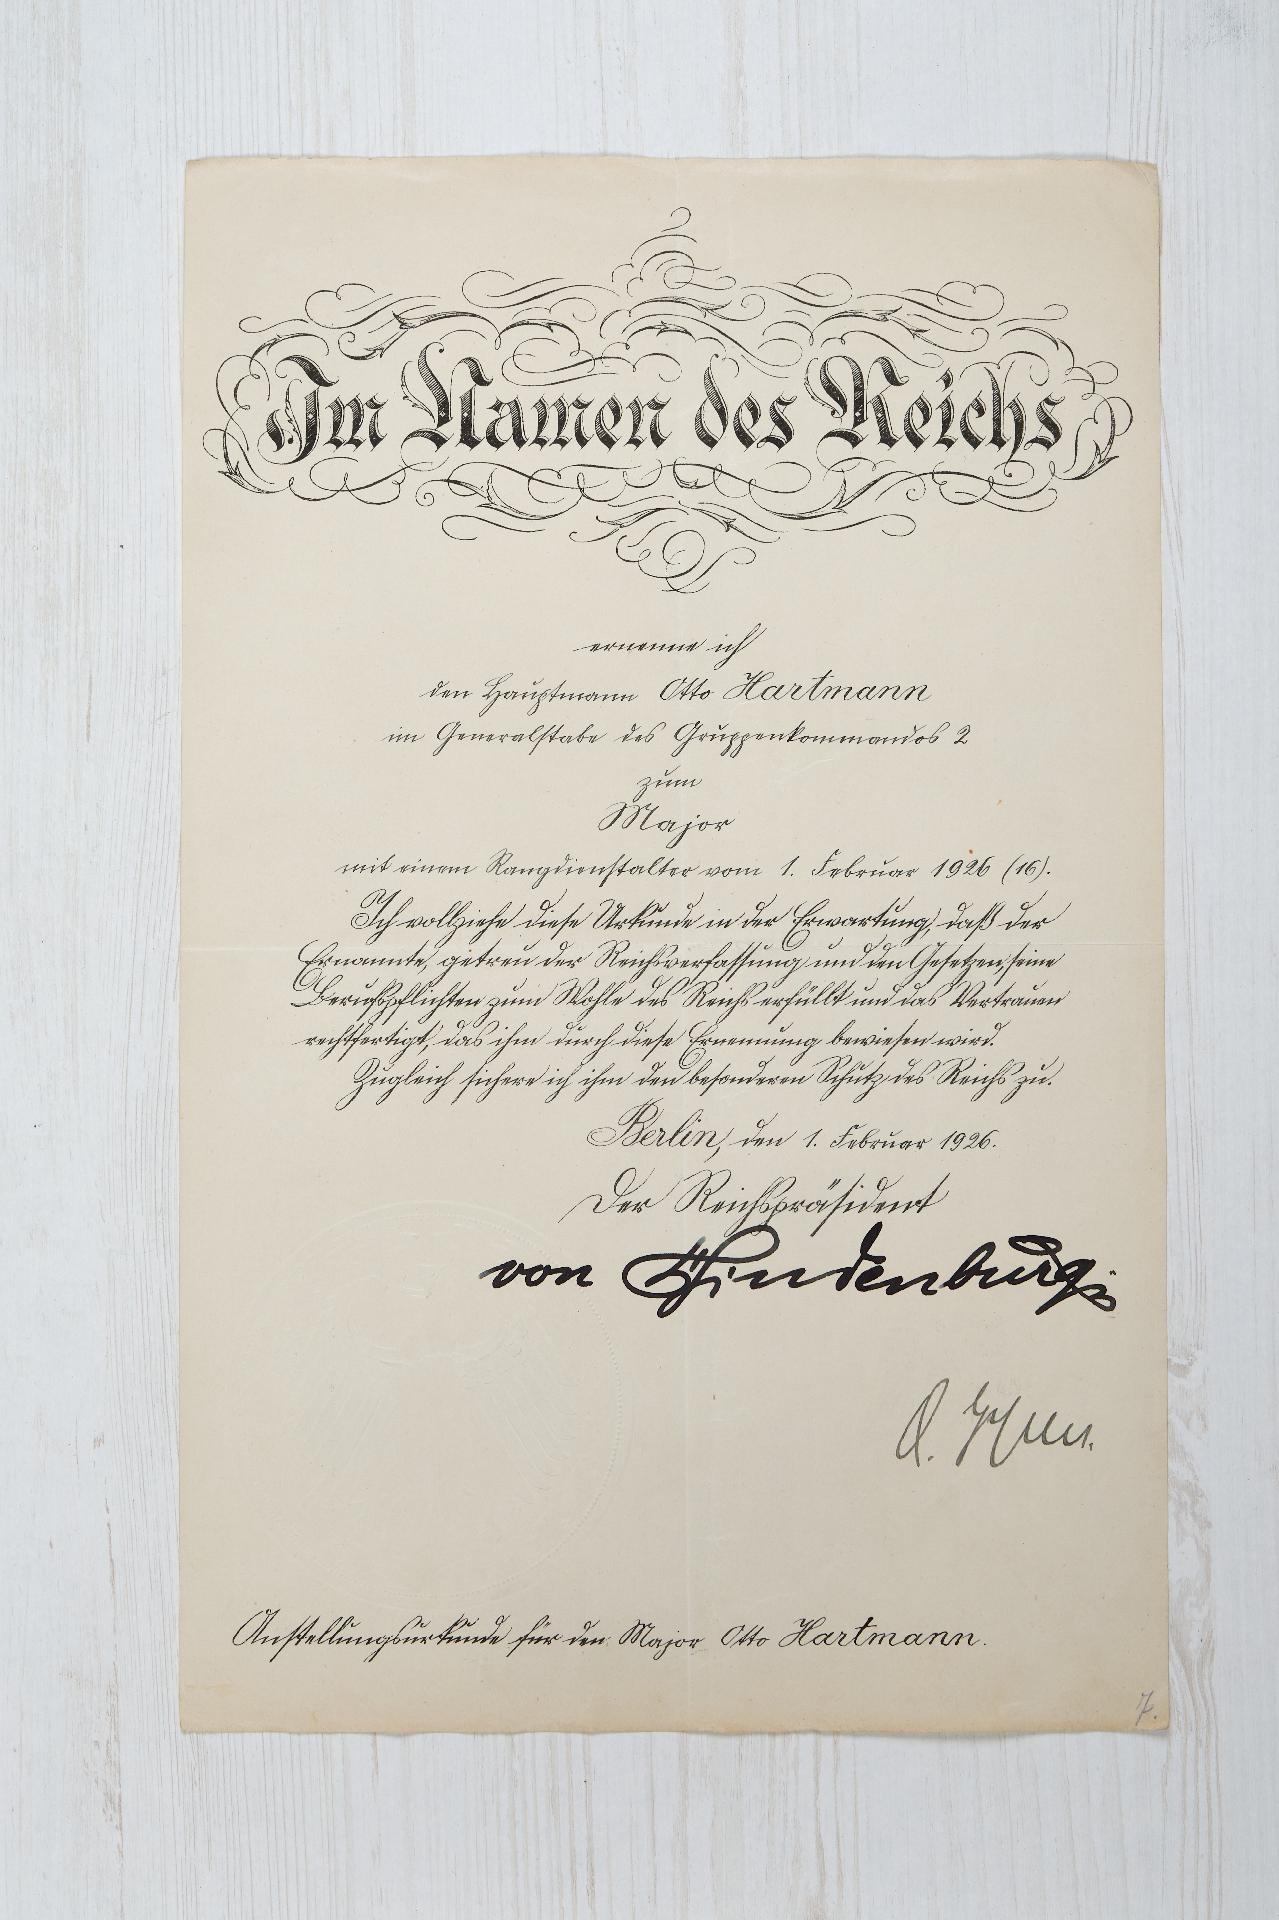 Im Namen des Reichs
ernenne ich
den Hauptmann Otto Hartmann
im Generalstabe des Gruppenkommandos 2
zum
Major
mit einem Rangdienstalter vom 1. Februar 1926 (16).
Ich vollziehe diese Urkunde in der Erwartung, daß der
Ernannte, getreu der Reichsverfassung und den Gesetzen, seine
Berufspflichten zum Wohle des Reichs erfüllt und das Vertrauen
rechtfertigt, das ihm durch diese Ernennung bewiesen wird.
Zugleich sichere ich ihm den besonderen Schutz des Reichs zu.
Berlin, den 1. Februar 1926.
Der Reichspräsident
von Hindenburg
Anstellungsurkunde für den Major Otto Hartmann.
7.